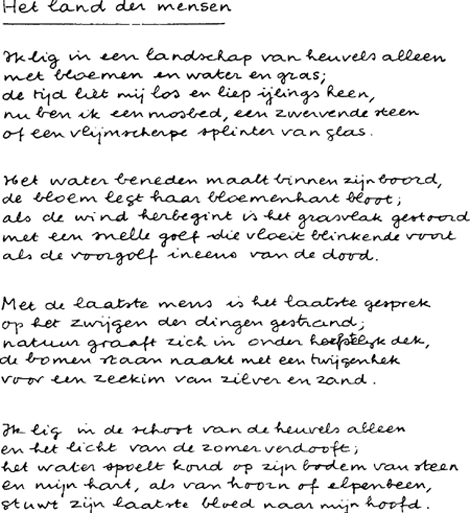 Het land der mensen
Ik lig in een landschap van heuvels alleen
met bloemen en water en gras;
de tijd liet mij los en liep ijlings heen,
nu ben ik een mosbed, een zwervende steen
of een vlijmscherpe splinter van glas.
Het water beneden maalt binnen zijn boord,
de bloem legt haar bloemenhart bloot;
als de wind herbegint is het grasvlak gestoord
met een snelle golf die vloeit blinkende voort
als de voorgolf ineens van de dood.
Met de laatste mens is het laatste gesprek
op het zwijgen der dingen gestrand;
natuur graaft zich in onder herfstlijk dek,
de bomen staan naakt met een twijgenhek
voor een zeekim van zilver en zand.
Ik lig in de schoot van de heuvels alleen
en het licht van de zomer verdooft;
het water spoelt koud op zijn bodem van steen
en mijn hart, als van hoorn of elpenbeen,
stuwt zijn laatste bloed naar mijn hoofd.